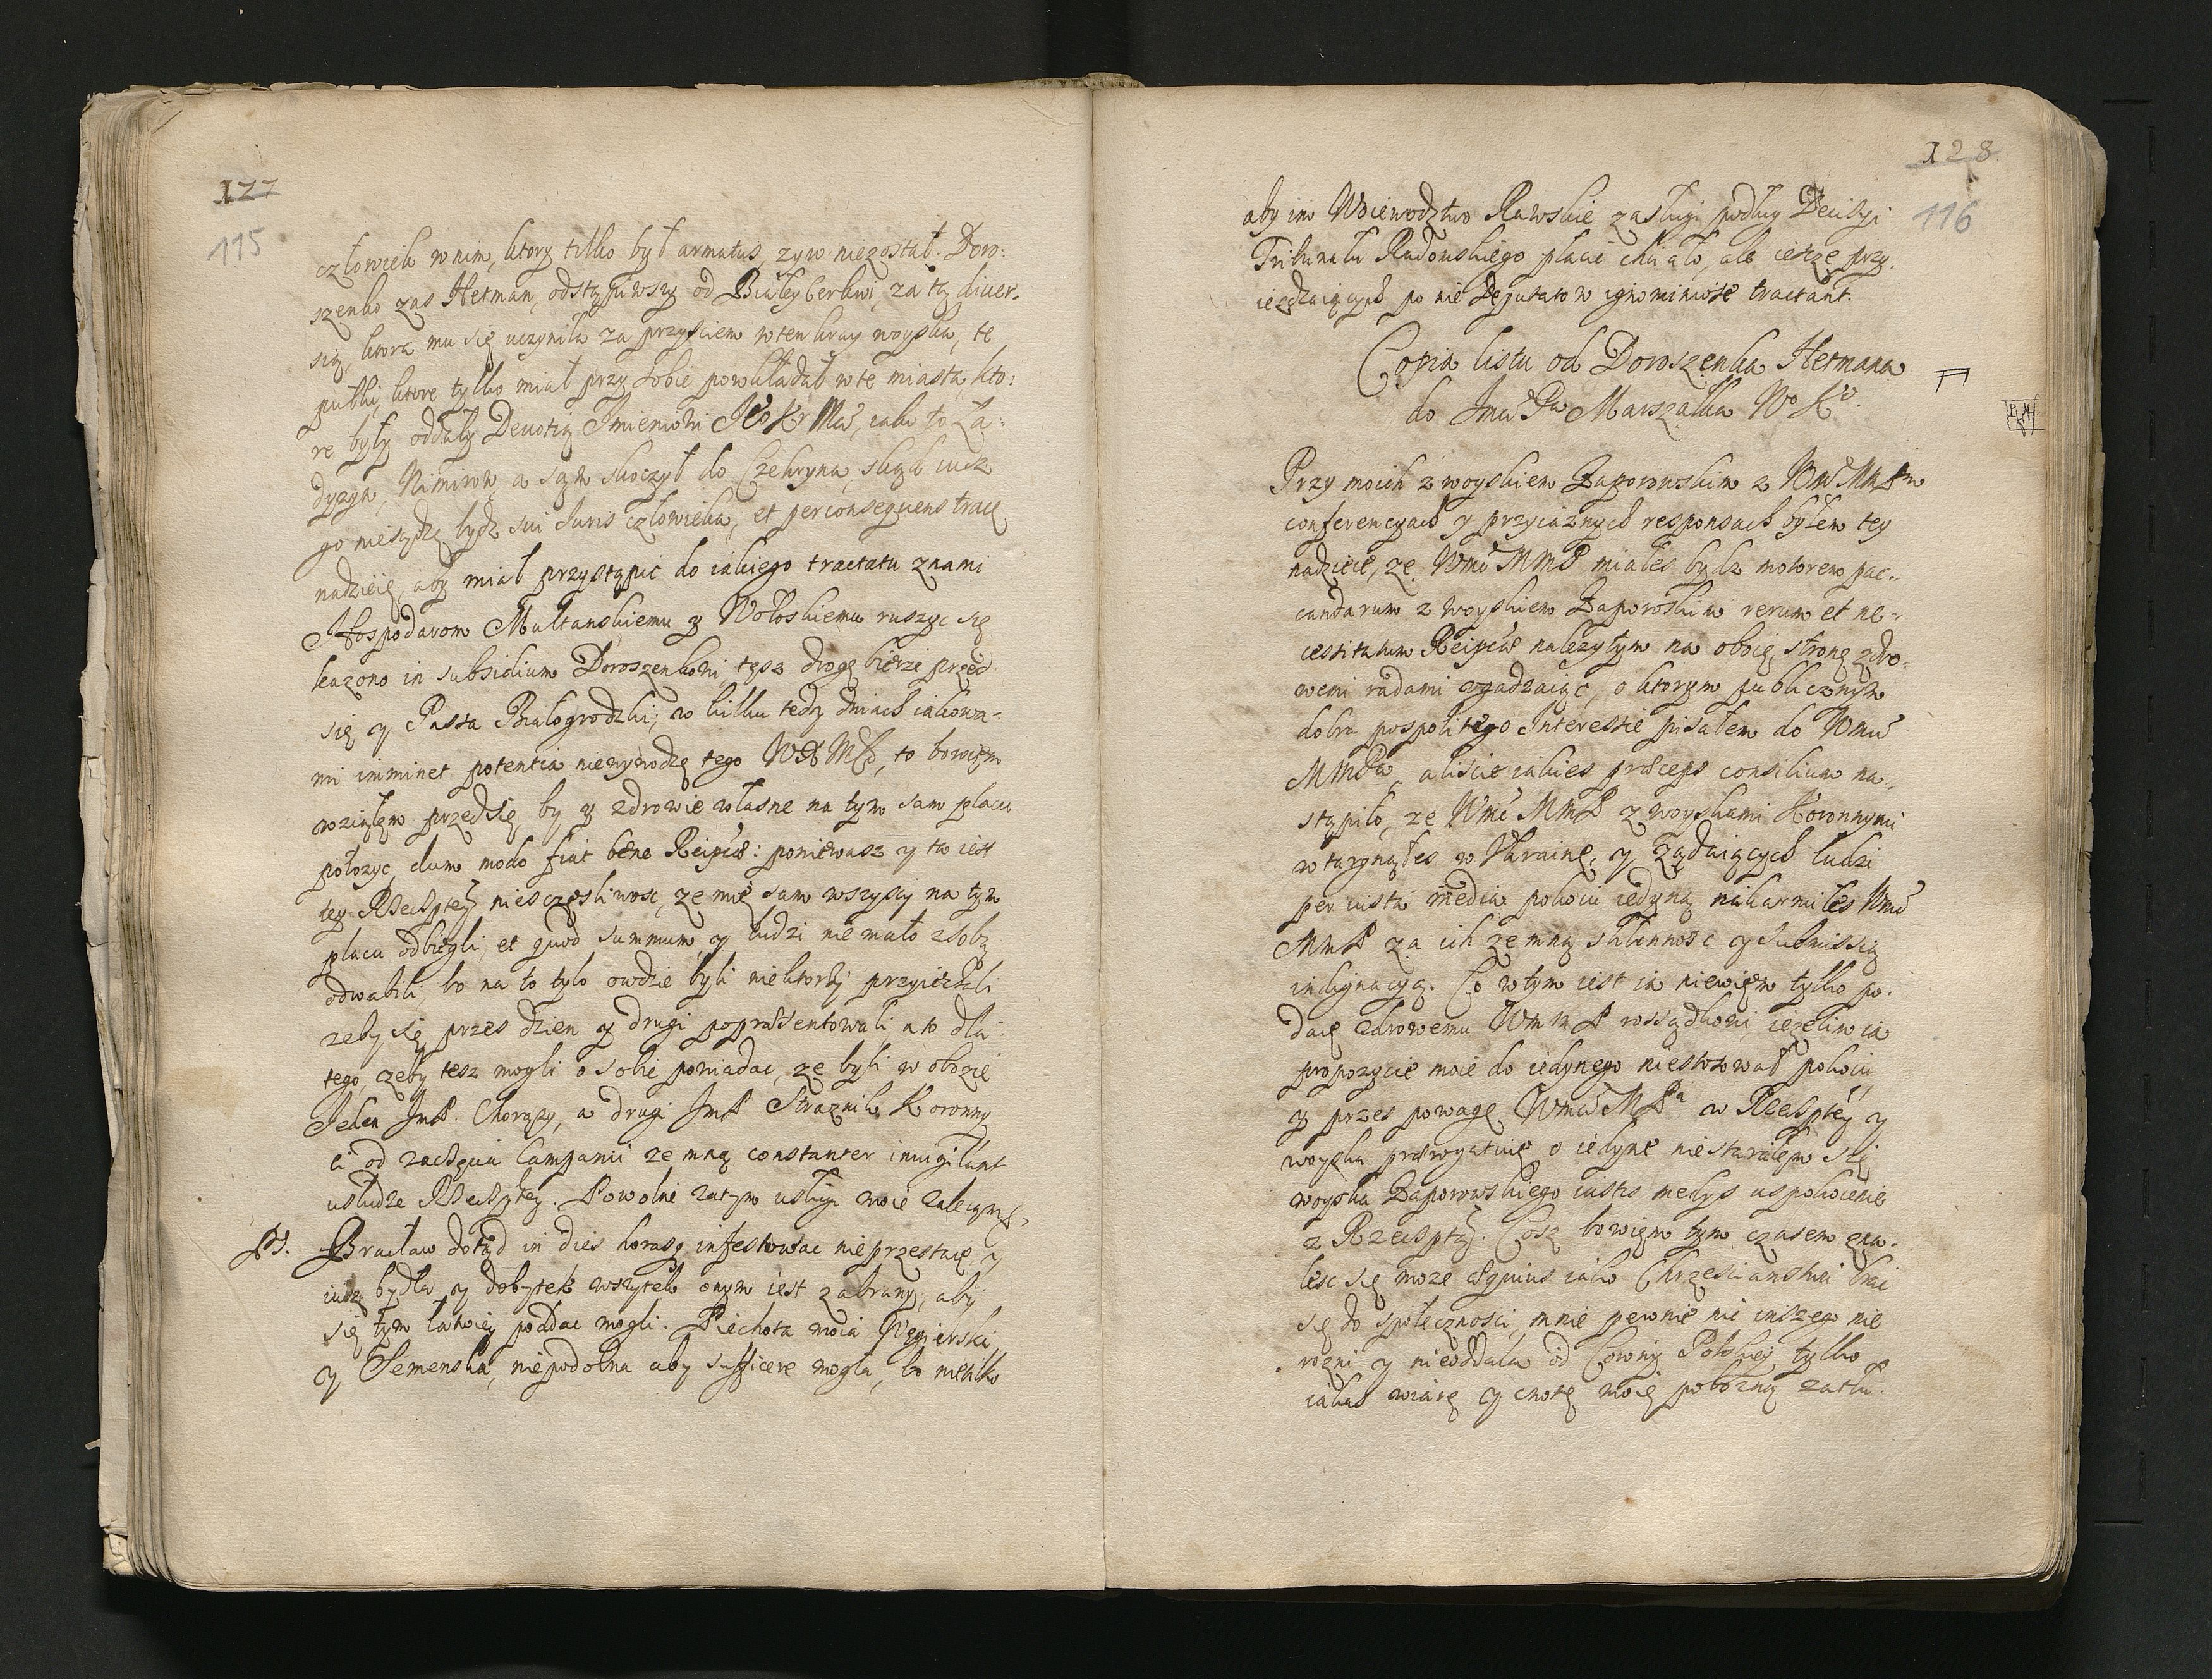 127
115
człowiek w nim, ktory tilko był armatus, zyw niezostał. Doro:
szenko zas Hetman, odstąpiwszy od Białey Cerkwi, za tą diver„
sią, ktora mu się uczyniła za przysciem w ten kray woyska, te
pułki, ktore tylko miał przy sobie powkładał w te miasta, kto:
re były oddały Devotią Imieniowi JKo Kr Mći, iako to Ła:
dyzyn, Nimirow, a sąm skoczył do Czehryna, skąd iusz
go niesądzę bydz sui Iuris człowieka, et per consequens tracę
nadzieię, aby miał przystąpic do iakiego tractatu z nami
Hospodarom Multanskiemu y Wołoskiemu ruszyc się
kazono in subsidium Doroszenkowi, tęsz drogę bierze przed
się y Passa Białogrodzki; w kilku tedy dniach iakowa„
mi imminet potentia niewywodzę tego WX MCi, to bowięm
wziąłęm przed się, by y zdrowie własne na tym sam placu
połozyc, dum modo fiat bene Reipcæ: poniewasz y ta iest
tey Rzeczptey niesczęsliwosc, ze mię sam wszyscy na tym
placu odbiegli, et quod summum, y ludzi nie mało z sobą
odwabili, bo na to tylo owdzie byli niektorzy przyiechali
zeby się przes dzien y drugi popræsentowali, a to dla
tego, zeby tesz mogli o sobie powiadac, ze byli w obozie
Jeden JmP. Chorązy, a drugi JmP Straznik Koronny
ci od zaczęcia Campanii ze mną constanter invigilant
usłudze Rzeczptey. Powolne zatym usługi moie zalecam &
PS. Bracław dotąd in dies horasq infestowac nieprzestaię y
iusz bydła y dobytek wszytek onym iest zabrany, aby
się tym łatwiey poddac mogli. Piechota moia Węgierski
y Semenska, niepodobna aby sufficere mogła, bo nietilko
128
116
aby im Woiewodztwo Rawskie zasługi podług Decisyi
Tribunału Radomskiego płacic chciało, ale iescze przy„
iezdzaiących po nie Deputatow ignominiose tractant.
Copia listu od Doroszenka Hetmana
do Jmći Pa Marszałka Wo Ko.
Przy moich z woyskiem Zaporowskim z WMć MMPm
conferencyach y przyiaznych responsach byłem tey
nadzieie, ze Wmć MMP miałes bydz motorem pac„
candarum z woyskiem Zaporoskim rerum et ne„
cessitatum Reipcæ nalezytym na oboię stronę zdro„
wemi radami zgadzaiąc, o ktorym publicznym
dobra pospolitego Interessie pisałem do Wmći
MMPa, aliscie iakies præceps consilium na„
stąpiło, ze Wmć MMP z woyskami Koronnymi
wtargnąłes w Ukrainę, y ządaiących ludzi
per iusta media pokoiu iedyną nakarmiłes Wmć
MMP za ich ze mną skłonnosc y submissią
indignacyą. Co w tym iest ia niewięm tylko po„
daię zdrowemu WmMP rossądkowi, iezelim ia
propozycie moie do iedynego niestosował pokoiu
y przes powagę Wmći MPa w Rzeczptey y
woyska prærogatiwę o iedyne niestarałęm się
woyska Zaporowskiego iustis medys uspokoienie
z Rzeczptą. Cosz bowięm tym czasem zna„
lesc się moze æquius iako Chrzescianskiei brac
się do społecznosci, mnie pewnie nic inszego nie
rozni y nieoddala od Corony Polskiey, tylko
iakas wiarę y cnotę moię pobozną zatłu„